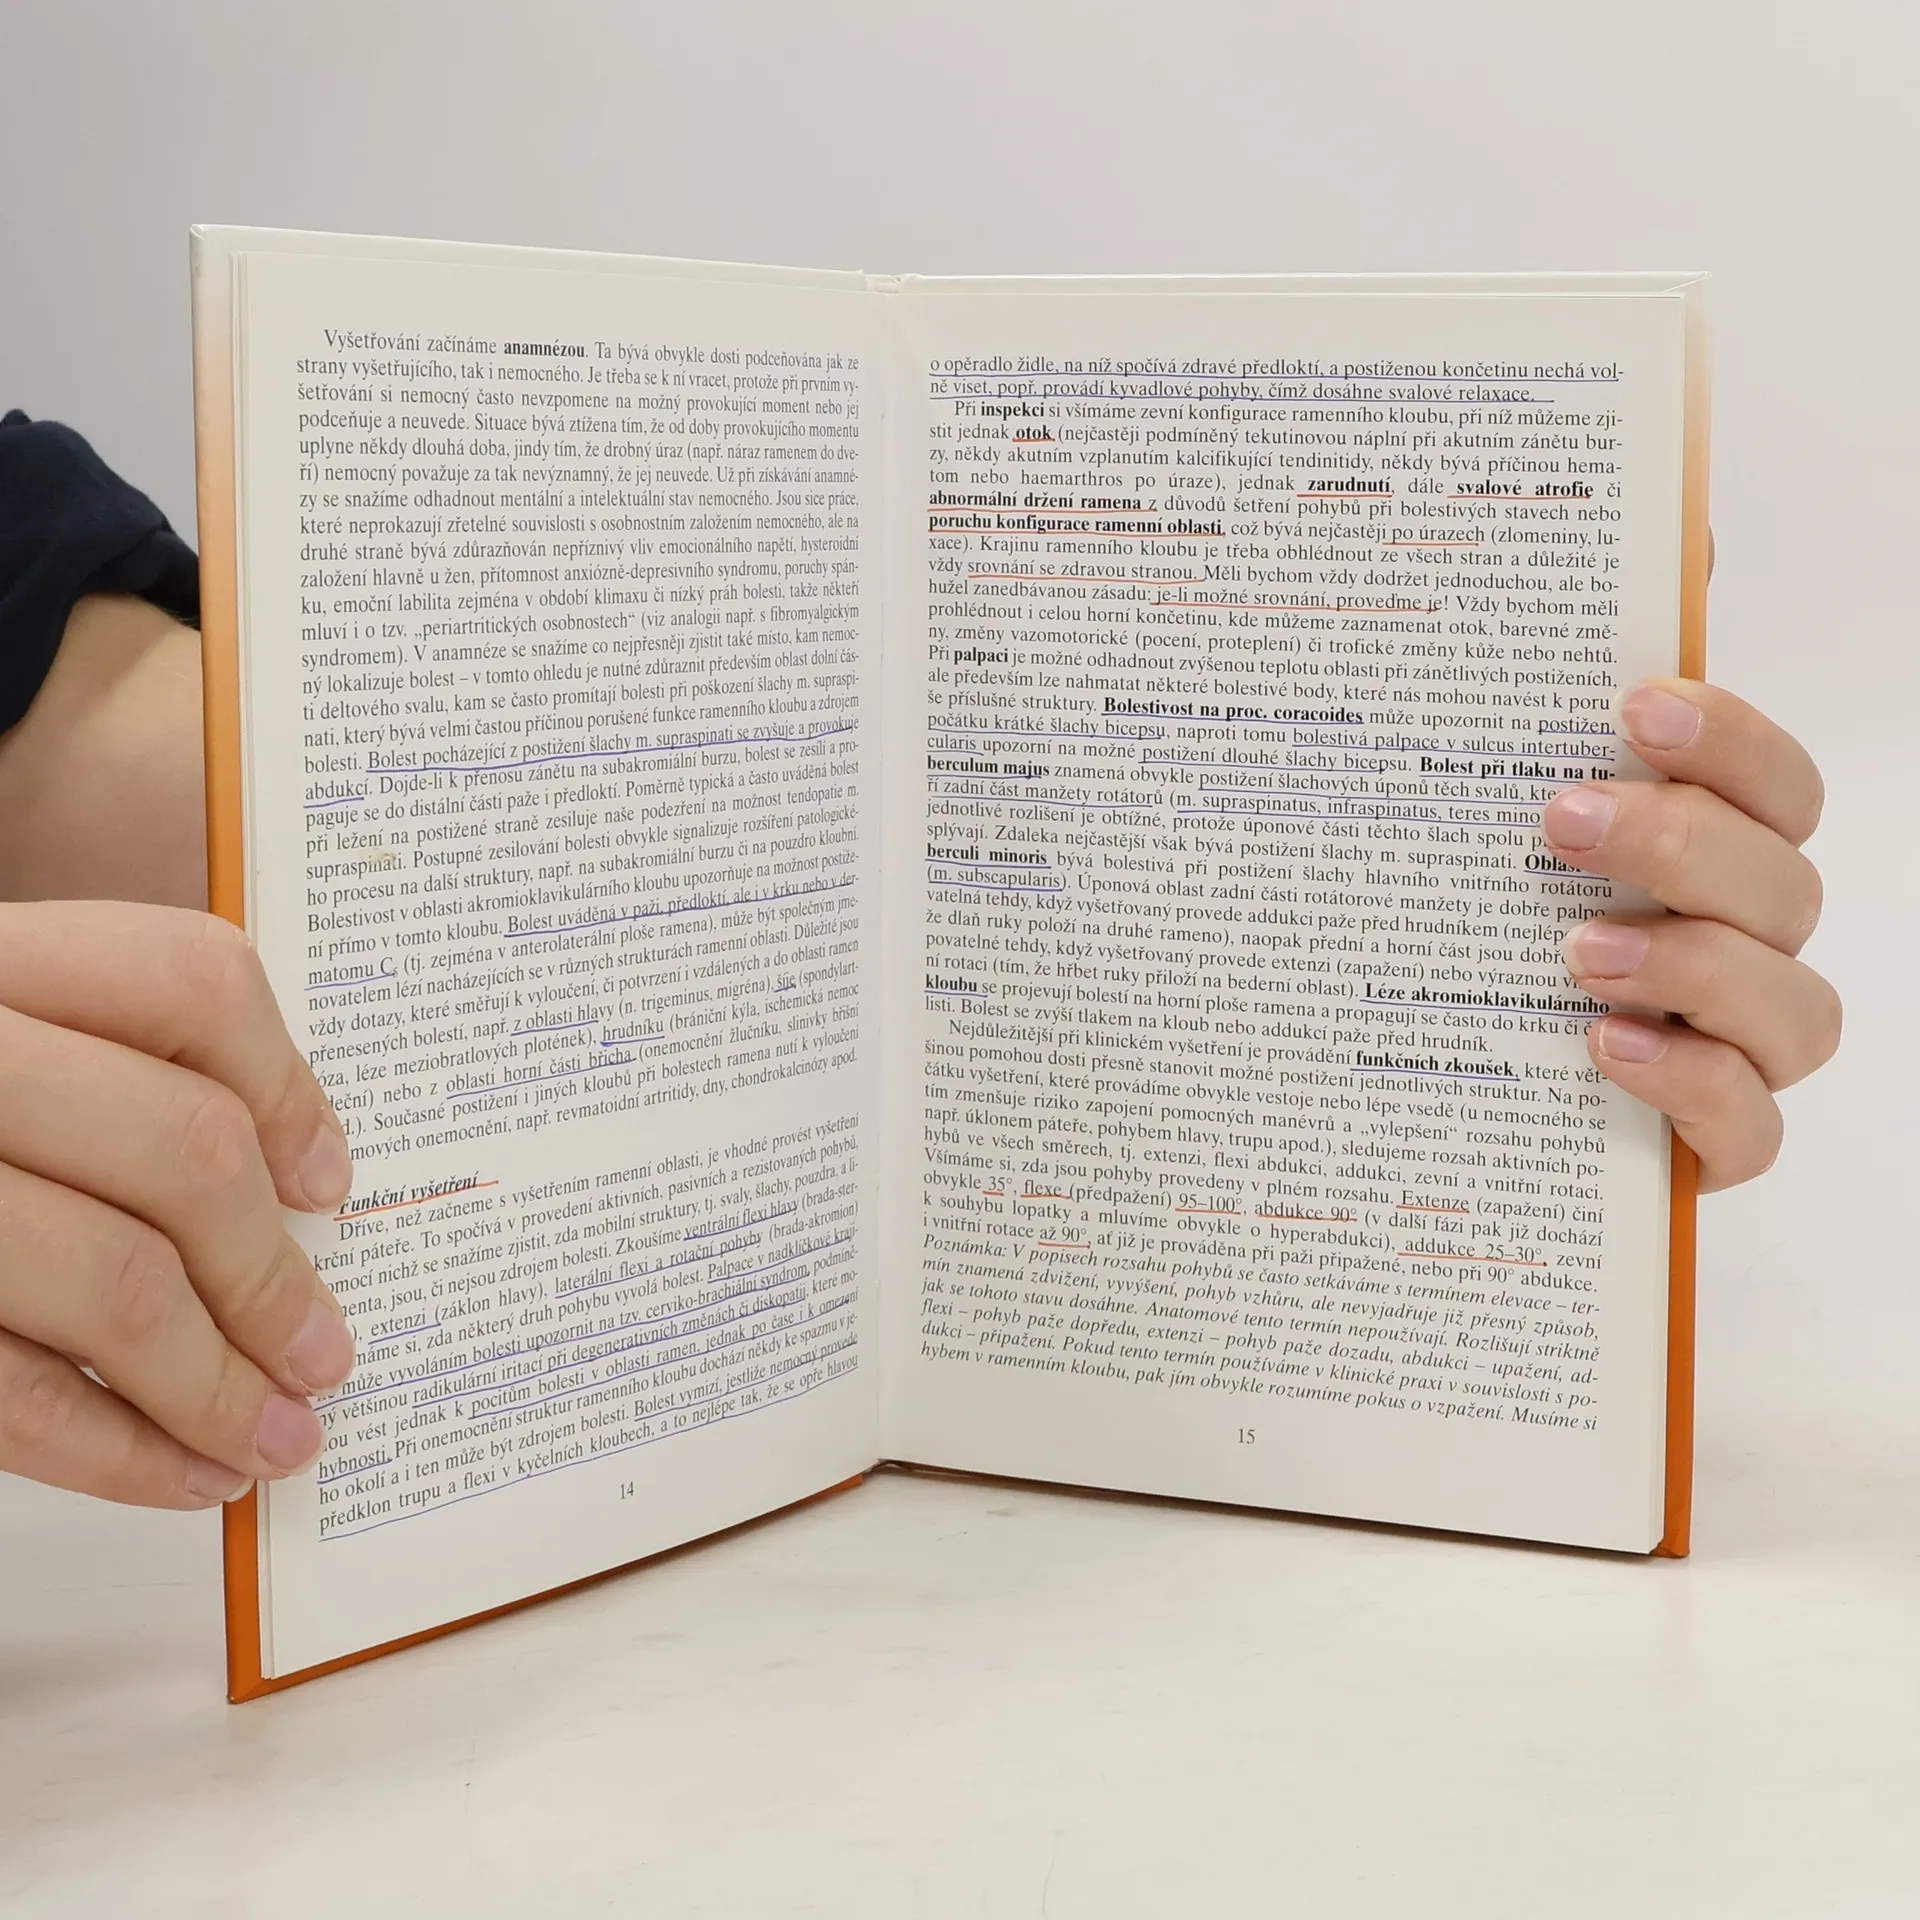 Vyšetřování začínáme anamnézou. Ta bývá obvykle dosti podceňována jak ze
strany vyšetřujícího, tak i nemocného. Je třeba se k ní vracet, protože při prvním vy-
šetřování si nemocný často nevzpomene na možný provokující moment nebo jej
podceňuje a neuvede. Situace bývá ztížena tím, že od doby provokujícího momentu
uplyne někdy dlouhá doba, jindy tím, že drobný úraz (např. náraz ramenem do dve-
ří) nemocný považuje za tak nevýznamný, že jej neuvede. Už při získávání anamné-
zy se snažíme odhadnout mentální a intelektuální stav nemocného. Jsou sice práce,
které neprokazují zřetelné souvislosti s osobnostním založením nemocného, ale na
druhé straně bývá zdůrazňován nepříznivý vliv emocionálního napětí, hysteroidní
založení hlavně u žen, přítomnost anxiózně-depresivního syndromu, poruchy spán-
ku, emoční labilita zejména v období klimaxu či nízký práh bolesti, takže někteří
mluví i o tzv. „periartritických osobnostech“ (viz analogii např. s fibromyalgickým
syndromem). V anamnéze se snažíme co nejpřesněji zjistit také místo, kam nemoc-
ný lokalizuje bolest – v tomto ohledu je nutné zdůraznit především oblast dolní čás-
ti deltového svalu, kam se často promítají bolesti při poškození šlachy m. supraspi-
nati, který bývá velmi častou příčinou porušené funkce ramenního kloubu a zdrojem
bolesti. Bolest pocházející z postižení šlachy m. supraspinati se zvyšuje a provokuje
abdukcí. Dojde-li k přenosu zánětu na subakromiální burzu, bolest se zesílí a pro-
paguje se do distální části paže i předloktí. Poměrně typická a často uváděná bolest
při ležení na postižené straně zesiluje naše podezření na možnost tendopatie m.
supraspinati. Postupné zesilování bolesti obvykle signalizuje rozšíření patologické-
ho procesu na další struktury, např. na subakromiální burzu či na pouzdro kloubní.
Bolestivost v oblasti akromioklavikulárního kloubu upozorňuje na možnost postiže-
ní přímo v tomto kloubu. Bolest uváděná v paži, předloktí, ale i v krku nebo v der-
matomu C5 (tj. zejména v anterolaterální ploše ramena), může být společným jme-
novatelem lézí nacházejících se v různých strukturách ramenní oblasti. Důležité jsou
vždy dotazy, které směřují k vyloučení, či potvrzení i vzdálených a do oblasti ramen
přenesených bolestí, např. z oblasti hlavy (n. trigeminus, migréna), šíje (spondylart-
óza, léze meziobratlových plotének), hrudníku (brániční kýla, ischemická nemoc
deční) nebo z oblasti horní části břicha (onemocnění žlučníku, slinivky břišní
d.). Současné postižení i jiných kloubů při bolestech ramena nutí k vyloučení
mových onemocnění, např. revmatoidní artritidy, dny, chondrokalcinózy apod.
Funkční vyšetření
Dříve, než začneme s vyšetřením ramenní oblasti, je vhodné provést vyšetření
krční páteře. To spočívá v provedení aktivních, pasivních a rezistovaných pohybů,
omocí nichž se snažíme zjistit, zda mobilní struktury, tj. svaly, šlachy, pouzdra, a li-
menta, jsou, či nejsou zdrojem bolesti. Zkoušíme ventrální flexi hlavy (brada-ster-
), extenzi (záklon hlavy), laterální flexi a rotační pohyby (brada-akromion)
máme si, zda některý druh pohybu vyvolá bolest. Palpace v nadklíčkové kraji-
může vyvoláním bolesti upozornit na tzv. cerviko-brachiální syndrom, podmíně-
ný většinou radikulární iritací při degenerativních změnách či diskopatii, které mo-
hou vést jednak k pocitům bolesti v oblasti ramen, jednak po čase i k omezení
hybnosti. Při onemocnění struktur ramenního kloubu dochází někdy ke spazmu v je-
ho okolí a i ten může být zdrojem bolesti. Bolest vymizí, jestliže nemocný provede
předklon trupu a flexi v kyčelních kloubech, a to nejlépe tak, že se opře hlavou
14
o opěradlo židle, na níž spočívá zdravé předloktí, a postiženou končetinu nechá vol-
ně viset, popř. provádí kyvadlové pohyby, čímž dosáhne svalové relaxace.
Při inspekci si všímáme zevní konfigurace ramenního kloubu, při níž můžeme zji-
stit jednak otok (nejčastěji podmíněný tekutinovou náplní při akutním zánětu bur-
zy, někdy akutním vzplanutím kalcifikující tendinitidy, někdy bývá příčinou hema-
tom nebo haemarthros po úraze), jednak zarudnutí, dále svalové atrofie či
abnormální držení ramena z důvodů šetření pohybů při bolestivých stavech nebo
poruchu konfigurace ramenní oblasti, což bývá nejčastěji po úrazech (zlomeniny, lu-
xace). Krajinu ramenního kloubu je třeba obhlédnout ze všech stran a důležité je
vždy srovnání se zdravou stranou. Měli bychom vždy dodržet jednoduchou, ale bo-
hužel zanedbávanou zásadu: je-li možné srovnání, proveďme je! Vždy bychom měli
prohlédnout i celou horní končetinu, kde můžeme zaznamenat otok, barevné změ-
ny, změny vazomotorické (pocení, proteplení) či trofické změny kůže nebo nehtů.
Při palpaci je možné odhadnout zvýšenou teplotu oblasti při zánětlivých postiženích,
ale především lze nahmatat některé bolestivé body, které nás mohou navést k poru
še příslušné struktury. Bolestivost na proc. coracoides může upozornit na postižen
počátku krátké šlachy bicepsu, naproti tomu bolestivá palpace v sulcus intertuber-
cularis upozorní na možné postižení dlouhé šlachy bicepsu. Bolest při tlaku na tu-
berculum majus znamená obvykle postižení šlachových úponů těch svalů, kte
ří zadní část manžety rotátorů (m. supraspinatus, infraspinatus, teres mino
jednotlivé rozlišení je obtížné, protože úponové části těchto šlach spolu
splývají. Zdaleka nejčastější však bývá postižení šlachy m. supraspinati. Oblas
berculi minoris bývá bolestivá při postižení šlachy hlavního vnitřního rotátoru
(m. subscapularis). Úponová oblast zadní části rotátorové manžety je dobře palpo
vatelná tehdy, když vyšetřovaný provede addukci paže před hrudníkem (nejlépe
že dlaň ruky položí na druhé rameno), naopak přední a horní část jsou dobře
povatelné tehdy, když vyšetřovaný provede extenzi (zapažení) nebo výraznou
ní rotaci (tím, že hřbet ruky přiloží na bederní oblast). Léze akromioklavikulárního
kloubu se projevují bolestí na horní ploše ramena a propagují se často do krku či
listi. Bolest se zvýší tlakem na kloub nebo addukcí paže před hrudník.
Nejdůležitější při klinickém vyšetření je provádění funkčních zkoušek, které vět-
šinou pomohou dosti přesně stanovit možné postižení jednotlivých struktur. Na po-
čátku vyšetření, které provádíme obvykle vestoje nebo lépe vsedě (u nemocného se
tím zmenšuje riziko zapojení pomocných manévrů a „vylepšení“ rozsahu pohybů
např. úklonem páteře, pohybem hlavy, trupu apod.), sledujeme rozsah aktivních po-
hybů ve všech směrech, tj. extenzi, flexi abdukci, addukci, zevní a vnitřní rotaci.
Všímáme si, zda jsou pohyby provedeny v plném rozsahu. Extenze (zapažení) činí
obvykle 35°, flexe (předpažení) 95–100°, abdukce 90° (v další fázi pak již dochází
k souhybu lopatky a mluvíme obvykle o hyperabdukci), addukce 25–30°, zevní
i vnitřní rotace až 90°, ať již je prováděna při paži připažené, nebo při 90° abdukce.
Poznámka: V popisech rozsahu pohybů se často setkáváme s termínem elevace – ter-
mín znamená zdvižení, vyvýšení, pohyb vzhůru, ale nevyjadřuje již přesný způsob,
jak se tohoto stavu dosáhne. Anatomové tento termín nepoužívají. Rozlišují striktně
flexi – pohyb paže dopředu, extenzi – pohyb paže dozadu, abdukci – upažení, ad-
dukci – připažení. Pokud tento termín používáme v klinické praxi v souvislosti s po-
hybem v ramenním kloubu, pak jím obvykle rozumíme pokus o vzpažení. Musíme si
15